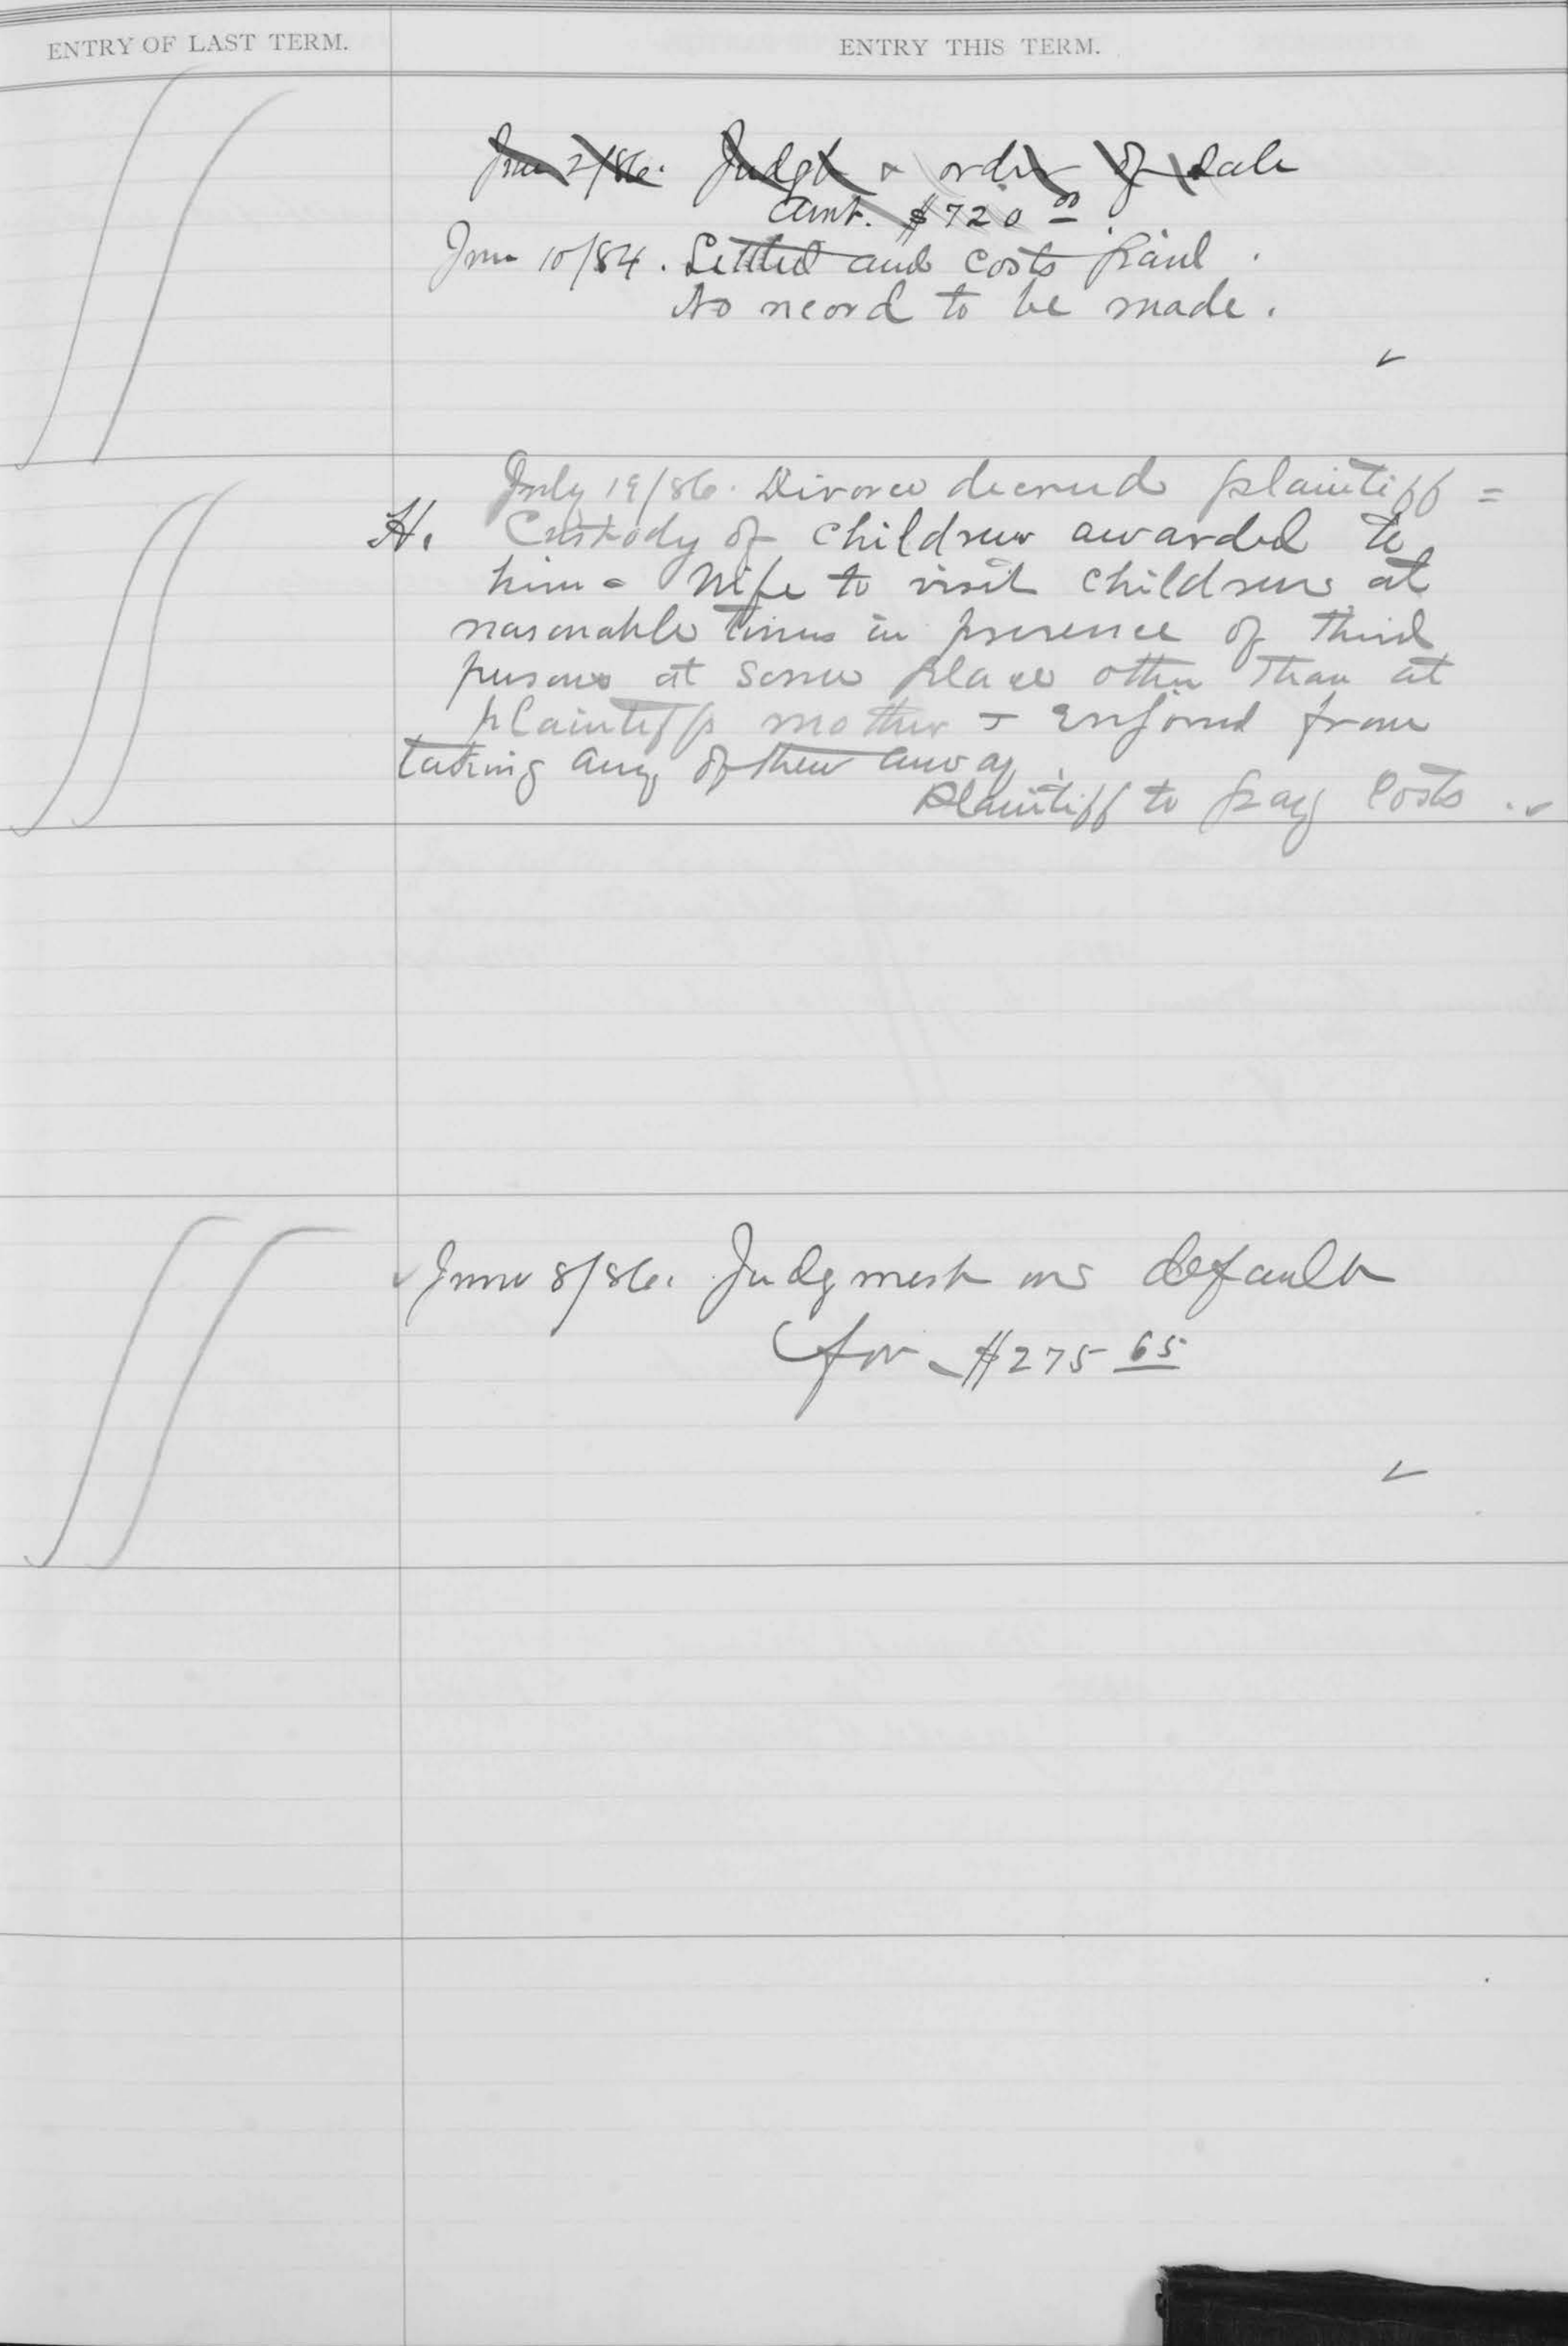 ENTRY OF LAST TERM.
ENTRY THIS TERM.
June 2/86. Judgt & order of sale
Amt. $720 00
June 10/84. Settled and costs paid.
No record to be made.
July 19/86. Divorce decreed plaintiff =
H. Custody of children awarded to
him - Wife to visit children at
reasonable times in presence of third
persons at some place other than at
plaintiffs mother - Enjoined from
taking any of them away.
Plaintiff to pay Costs.
June 8/86. Judgment on default
for $275 65